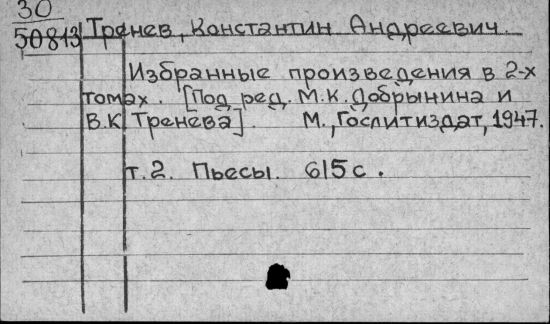 30
50813 Тренев, Константин Андреевич.
Избранные произведения в 2-х
томах. [Под ред. М.К. Добрынина и
В.К. Тренева]. М., Гослитиздат, 1947.
т.2. Пьесы. 615 с.